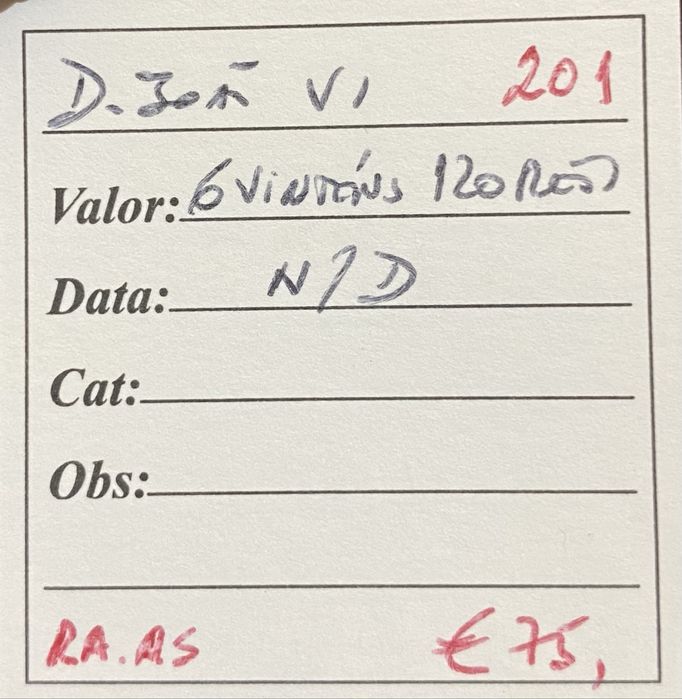 D. João VI 201
Valor: 6 Vinténs 120 Reis
Data: N/D
Cat:
Obs:
RA.AS € 75,